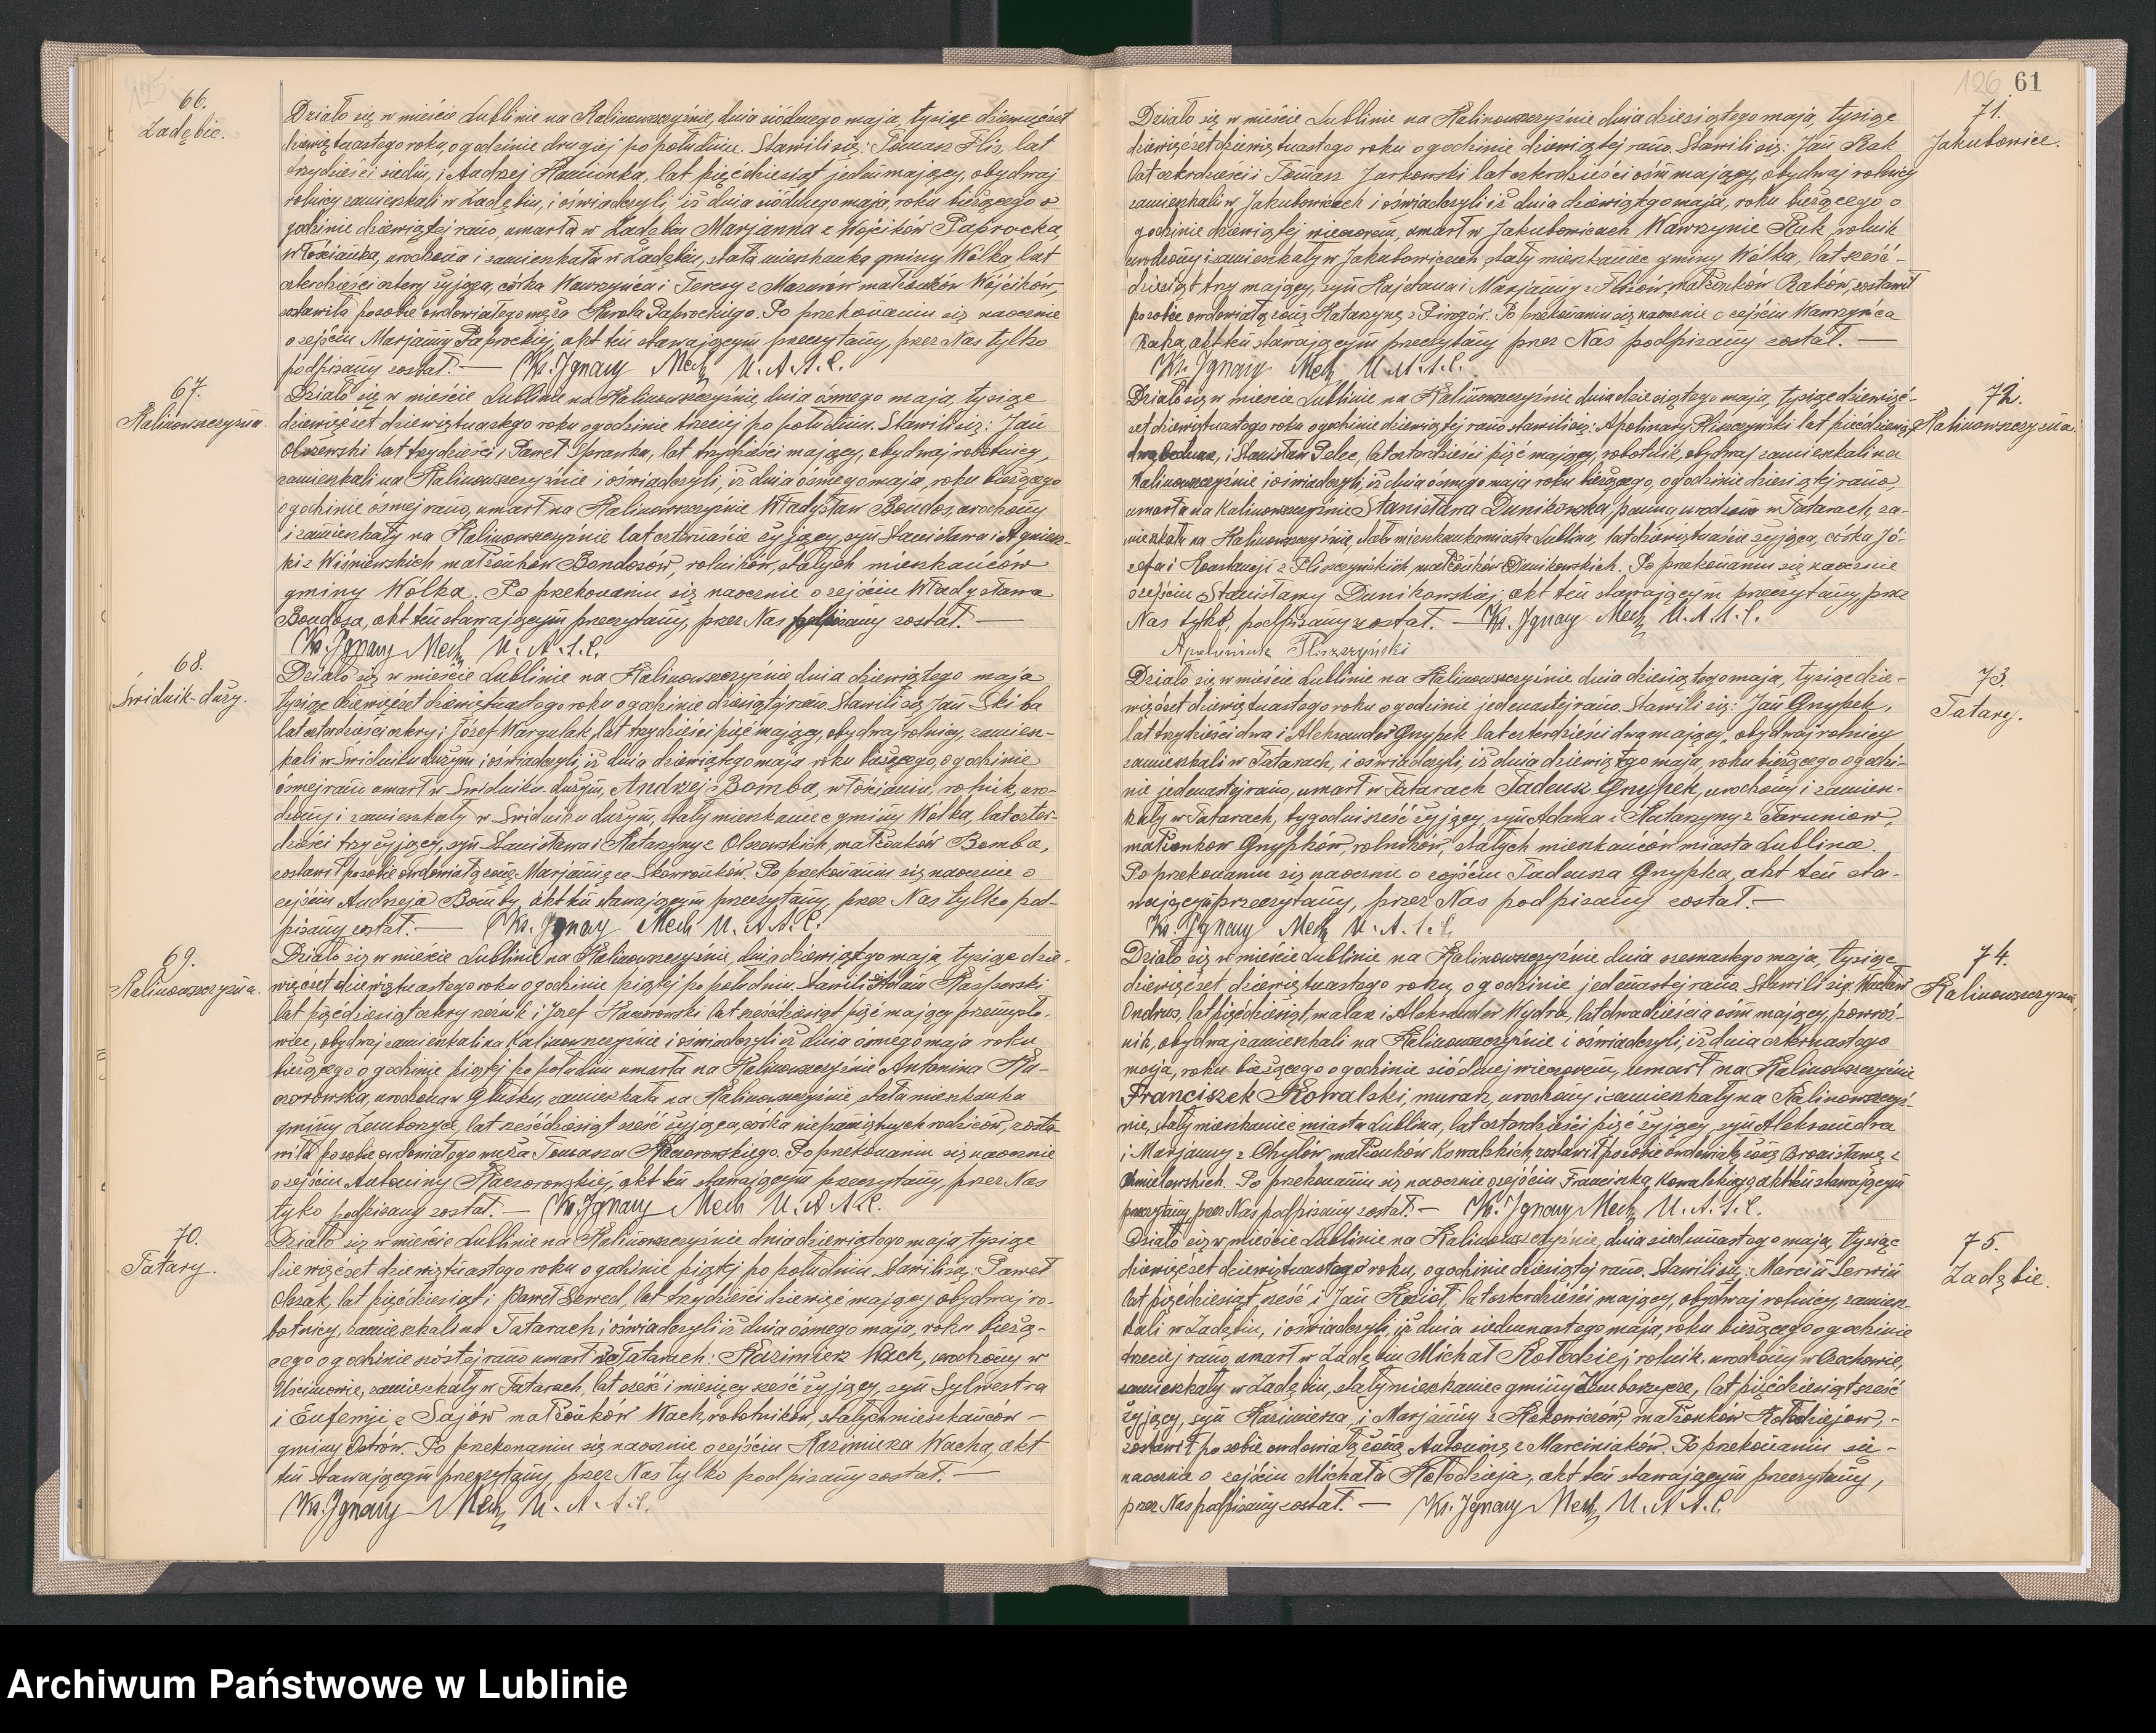 125.
66.
Zadębie.
Działo się w mieście Lublinie na Kalinowszczyźnie, dnia siódmego maja, tysiąc dziewięćset
dziewiętnastego roku, o godzinie drugiej po południu. Stawili się: Tomasz Flis, lat
trzydzieści siedm, i Andrzej Hamionka, lat pięćdziesiąt jeden mający, obydwaj
rolnicy zamieszkali w Zadębiu, i oświadczyli iż dnia siódmego maja, roku bieżącego o
godzinie dziewiątej rano, umarła w Zadębiu Marjanna z Wójcików Paprocka,
włościanka, urodzona i zamieszkała w Zadębiu, stała mieszkanka gminy Wólka, lat
czterdzieści cztery żyjąca, córka Wawrzyńca i Teresy z Mazurów małżonków Wójcików,
zostawiła po sobie owdowiałego męża Karola Paprockiego. Po przekonaniu się naocznie
o zejściu Marjanny Paprockiej, akt ten stawającym przeczytany, przez Nas tylko
podpisany został. — Ks. Ignacy Mech U. A. S. C.
67.
Kalinowszczyzna.
Działo się w mieście Lublinie na Kalinowszczyźnie, dnia ósmego maja, tysiąc
dziewięćset dziewiętnastego roku o godzinie trzeciej po południu. Stawili się: Jan
Olszewski lat trzydzieści i Paweł Sprawka, lat trzydzieści mający, obydwaj robotnicy,
zamieszkali na Kalinowszczyźnie i oświadczyli, iż dnia ósmego maja, roku bieżącego
o godzinie ósmej rano, umarł na Kalinowszczyźnie Władysław Bondos, urodzony
i zamieszkały na Kalinowszczyźnie lat czternaście żyjący, syn Stanisława i Agniesz-
ki z Wiśniewskich małżonków Bondosów, rolników, stałych mieszkańców
gminy Wólka. Po przekonaniu się naocznie o zejściu Władysława
Bondosa, akt ten stawającym przeczytany, przez Nas podpisany został. —
Ks. Ignacy Mech U. A. S. C.
68.
Świdnik-duży.
Działo się w mieście Lublinie na Kalinowszczyźnie dnia dziewiątego maja
tysiąc dziewięćset dziewiętnastego roku o godzinie dziesiątej rano. Stawili się Jan Skiba
lat czterdzieści cztery i Józef Wargulak, lat trzydzieści pięć mający, obydwaj rolnicy, zamiesz-
kali w Świdniku dużym i oświadczyli, iż dnia dziewiątego maja roku bieżącego, o godzinie
ósmej rano umarł w Świdniku dużym, Andrzej Bomba, włościanin, rolnik, uro-
dzony i zamieszkały w Świdniku dużym, stały mieszkaniec gminy Wólka, lat czter-
dzieści trzy żyjący, syn Stanisława i Katarzyny z Olszewskich, małżonków Bomba,
zostawił po sobie owdowiałą żonę Marjannę ze Skowronków. Po przekonaniu się naocznie o
zejściu Andrzeja Bomby, akt ten stawającym przeczytany, przez Nas tylko pod-
pisany został. — Ks. Ignacy Mech U. A. S. C.
69.
Kalinowszczyzna.
Działo się w mieście Lublinie na Kalinowszczyźnie, dnia dziewiątego maja tysiąc dzie-
więćset dziewiętnastego roku o godzinie piątej po południu. Stawili się Adam Kasperski
lat pięćdziesiąt cztery rzeźnik i Józef Kaczorowski lat sześćdziesiąt pięć mający przemysło-
wiec, obydwaj zamieszkali na Kalinowszczyźnie i oświadczyli iż dnia ósmego maja roku
bieżącego o godzinie piątej po południu umarła na Kalinowszczyźnie Antonina Ka-
czorowska, urodzona w Głusku, zamieszkała na Kalinowszczyźnie, stała mieszkanka
gminy Zemborzyce, lat sześćdziesiąt sześć żyjąca, córka niepamiętnych rodziców, zosta-
wiła po sobie owdowiałego męża Tomasza Kaczorowskiego. Po przekonaniu się naocznie
o zejściu Antoniny Kaczorowskiej, akt ten stawającym przeczytany, przez Nas
tylko podpisany został. — Ks. Ignacy Mech U. A. S. C.
70.
Tatary.
Działo się w mieście Lublinie na Kalinowszczyźnie dnia dziewiątego maja, tysiąc
dziewięćset dziewiętnastego roku o godzinie piątej po południu. Stawili się: Paweł
Olszak, lat pięćdziesiąt i Paweł Sewed, lat trzydzieści dziewięć mający obydwaj ro-
botnicy, zamieszkali na Tatarach i oświadczyli iż dnia ósmego maja, roku bieżą-
cego o godzinie szóstej rano umarł w Tatarach: Kazimierz Wach, urodzony w
Uścimowie, zamieszkały w Tatarach, lat sześć i miesięcy sześć żyjący, syn Sylwestra
i Eufemji z Sajów małżonków Wach, robotników, stałych mieszkańców
gminy Ostrów. Po przekonaniu się naocznie o zejściu Kazimierza Wacha, akt
ten stawającym przeczytany, przez Nas tylko podpisany został. —
Ks. Ignacy Mech U. A. S. C.
126 61
71.
Jakubowice.
Działo się w mieście Lublinie na Kalinowszczyźnie dnia dziesiątego maja, tysiąc
dziewięćset dziewiętnastego roku o godzinie dziewiątej rano. Stawili się: Jan Rak
lat czterdzieści i Tomasz Jurkowski lat czterdzieści ósm mający, obydwaj rolnicy
zamieszkali w Jakubowicach i oświadczyli iż dnia dziewiątego maja, roku bieżącego o
godzinie dziewiątej wieczorem, umarł w Jakubowicach Wawrzyniec Rak, rolnik
urodzony i zamieszkały w Jakubowicach, stały mieszkaniec gminy Wólka, lat sześć-
dziesiąt trzy mający, syn Kajetana i Marjanny z Flisów, małżonków Raków, zostawił
po sobie owdowiałą żonę Katarzynę z Pirogów. Po przekonaniu się naocznie o zejściu Wawrzyńca
Raka, akt ten stawającym przeczytany przez Nas podpisany został. —
Ks. Ignacy Mech U. A. S. C.
72.
Kalinowszczyzna.
Działo się w mieście Lublinie na Kalinowszczyźnie dnia dziesiątego maja, tysiąc dziewięć-
set dziewiętnastego roku o godzinie dziewiątej rano stawili się: Apolinary Pliszczyński lat pięćdziesiąt
dwa, i Stanisław Pelec, lat czterdzieści pięć mający, robotnik, obydwaj zamieszkali na
Kalinowszczyźnie i oświadczyli, iż dnia ósmego maja roku bieżącego, o godzinie dziesiątej rano,
umarła na Kalinowszczyźnie Stanisława Dunikowska, panna, urodzona w Tatarach, za-
mieszkała na Kalinowszczyźnie, stała mieszkanka miasta Lublina, lat dziewiętnaście żyjąca, córka Jó-
zefa i Konstancji z Pliszczyńskich, małżonków Dunikowskich. Po przekonaniu się naocznie
o zejściu Stanisławy Dunikowskiej, akt ten stawającym przeczytany, przez
Nas tylko, podpisany został. — Ks. Ignacy Mech U. A. S. C.
Pliszczyński
73.
Tatary.
Działo się w mieście Lublinie na Kalinowszczyźnie dnia dziesiątego maja, tysiąc dzie-
więćset dziewiętnastego roku o godzinie jedenastej rano. Stawili się: Jan Gnypek,
lat trzydzieści dwa i Aleksander Gnypek lat czterdzieści dwa mający, obydwaj rolnicy
zamieszkali w Tatarach, i oświadczyli, iż dnia dziewiątego maja, roku bieżącego o godzi-
nie jedenastej rano, umarł w Tatarach Tadeusz Gnypek, urodzony i zamiesz-
kały w Tatarach, tygodni sześć żyjący, syn Adama i Katarzyny z Taruniow,
małżonkow Gnypków, rolników, stałych mieszkańców miasta Lublina.
Po przekonaniu się naocznie o zejściu Tadeusza Gnypka, akt ten sta-
wającym przeczytany, przez Nas podpisany został. —
Ks. Ignacy Mech U. A. S. C.
74.
Kalinowszczyzna.
Działo się w mieście Lublinie na Kalinowszczyźnie dnia szesnastego maja, tysiąc
dziewięćset dziewiętnastego roku, o godzinie jedenastej rano. Stawili się: Wacław
Ondrus, lat pięćdziesiąt, malarz i Aleksander Wydra, lat dwadzieścia ósm mający, powroź-
nik, obydwaj zamieszkali na Kalinowszczyźnie i oświadczyli, iż dnia czternastego
maja, roku bieżącego o godzinie siódmej wieczorem, umarł na Kalinowszczyźnie
Franciszek Kowalski, murarz, urodzony i zamieszkały na Kalinowszczyź-
nie, stały mieszkaniec miasta Lublina, lat czterdzieści pięć żyjący, syn Aleksandra
i Marjanny z Chylów małżonków Kowalskich, zostawił po sobie owdowiałą żonę Bronisławę z
Chmielewskich. Po przekonaniu się naocznie o zejściu Franciszka Kowalskiego akt ten stawającym
przeczytany, przez Nas podpisany został. — Ks. Ignacy Mech U. A. S. C.
75.
Zadębie.
Działo się w mieście Lublinie na Kalinowszczyźnie, dnia siedmnastego maja, tysiąc
dziewięćset dziewiętnastego roku, o godzinie dziesiątej rano. Stawili się: Marcin Serwin
lat pięćdziesiąt sześć i Jan Kozioł, lat czterdzieści mający, obydwaj rolnicy, zamiesz-
kali w Zadębiu, i oświadczyli, iż dnia siedmnastego maja, roku bieżącego o godzinie
trzeciej rano, umarł w Zadębiu Michał Kołodziej, rolnik, urodzony w Czechowie,
zamieszkały w Zadębiu, stały mieszkaniec gminy Zemborzyce, lat pięćdziesiąt sześć
żyjący, syn Kazimierza, i Marjanny z Rokowiczów małżonków Kołodziejow, -
zostawił po sobie owdowiałą żonę Antoninę z Marciniaków. Po przekonaniu się -
naocznie o zejściu Michała Kołodzieja, akt ten stawającym przeczytany,
przez Nas podpisany został. — Ks. Ignacy Mech U. A. S. C.
Archiwum Państwowe w Lublinie